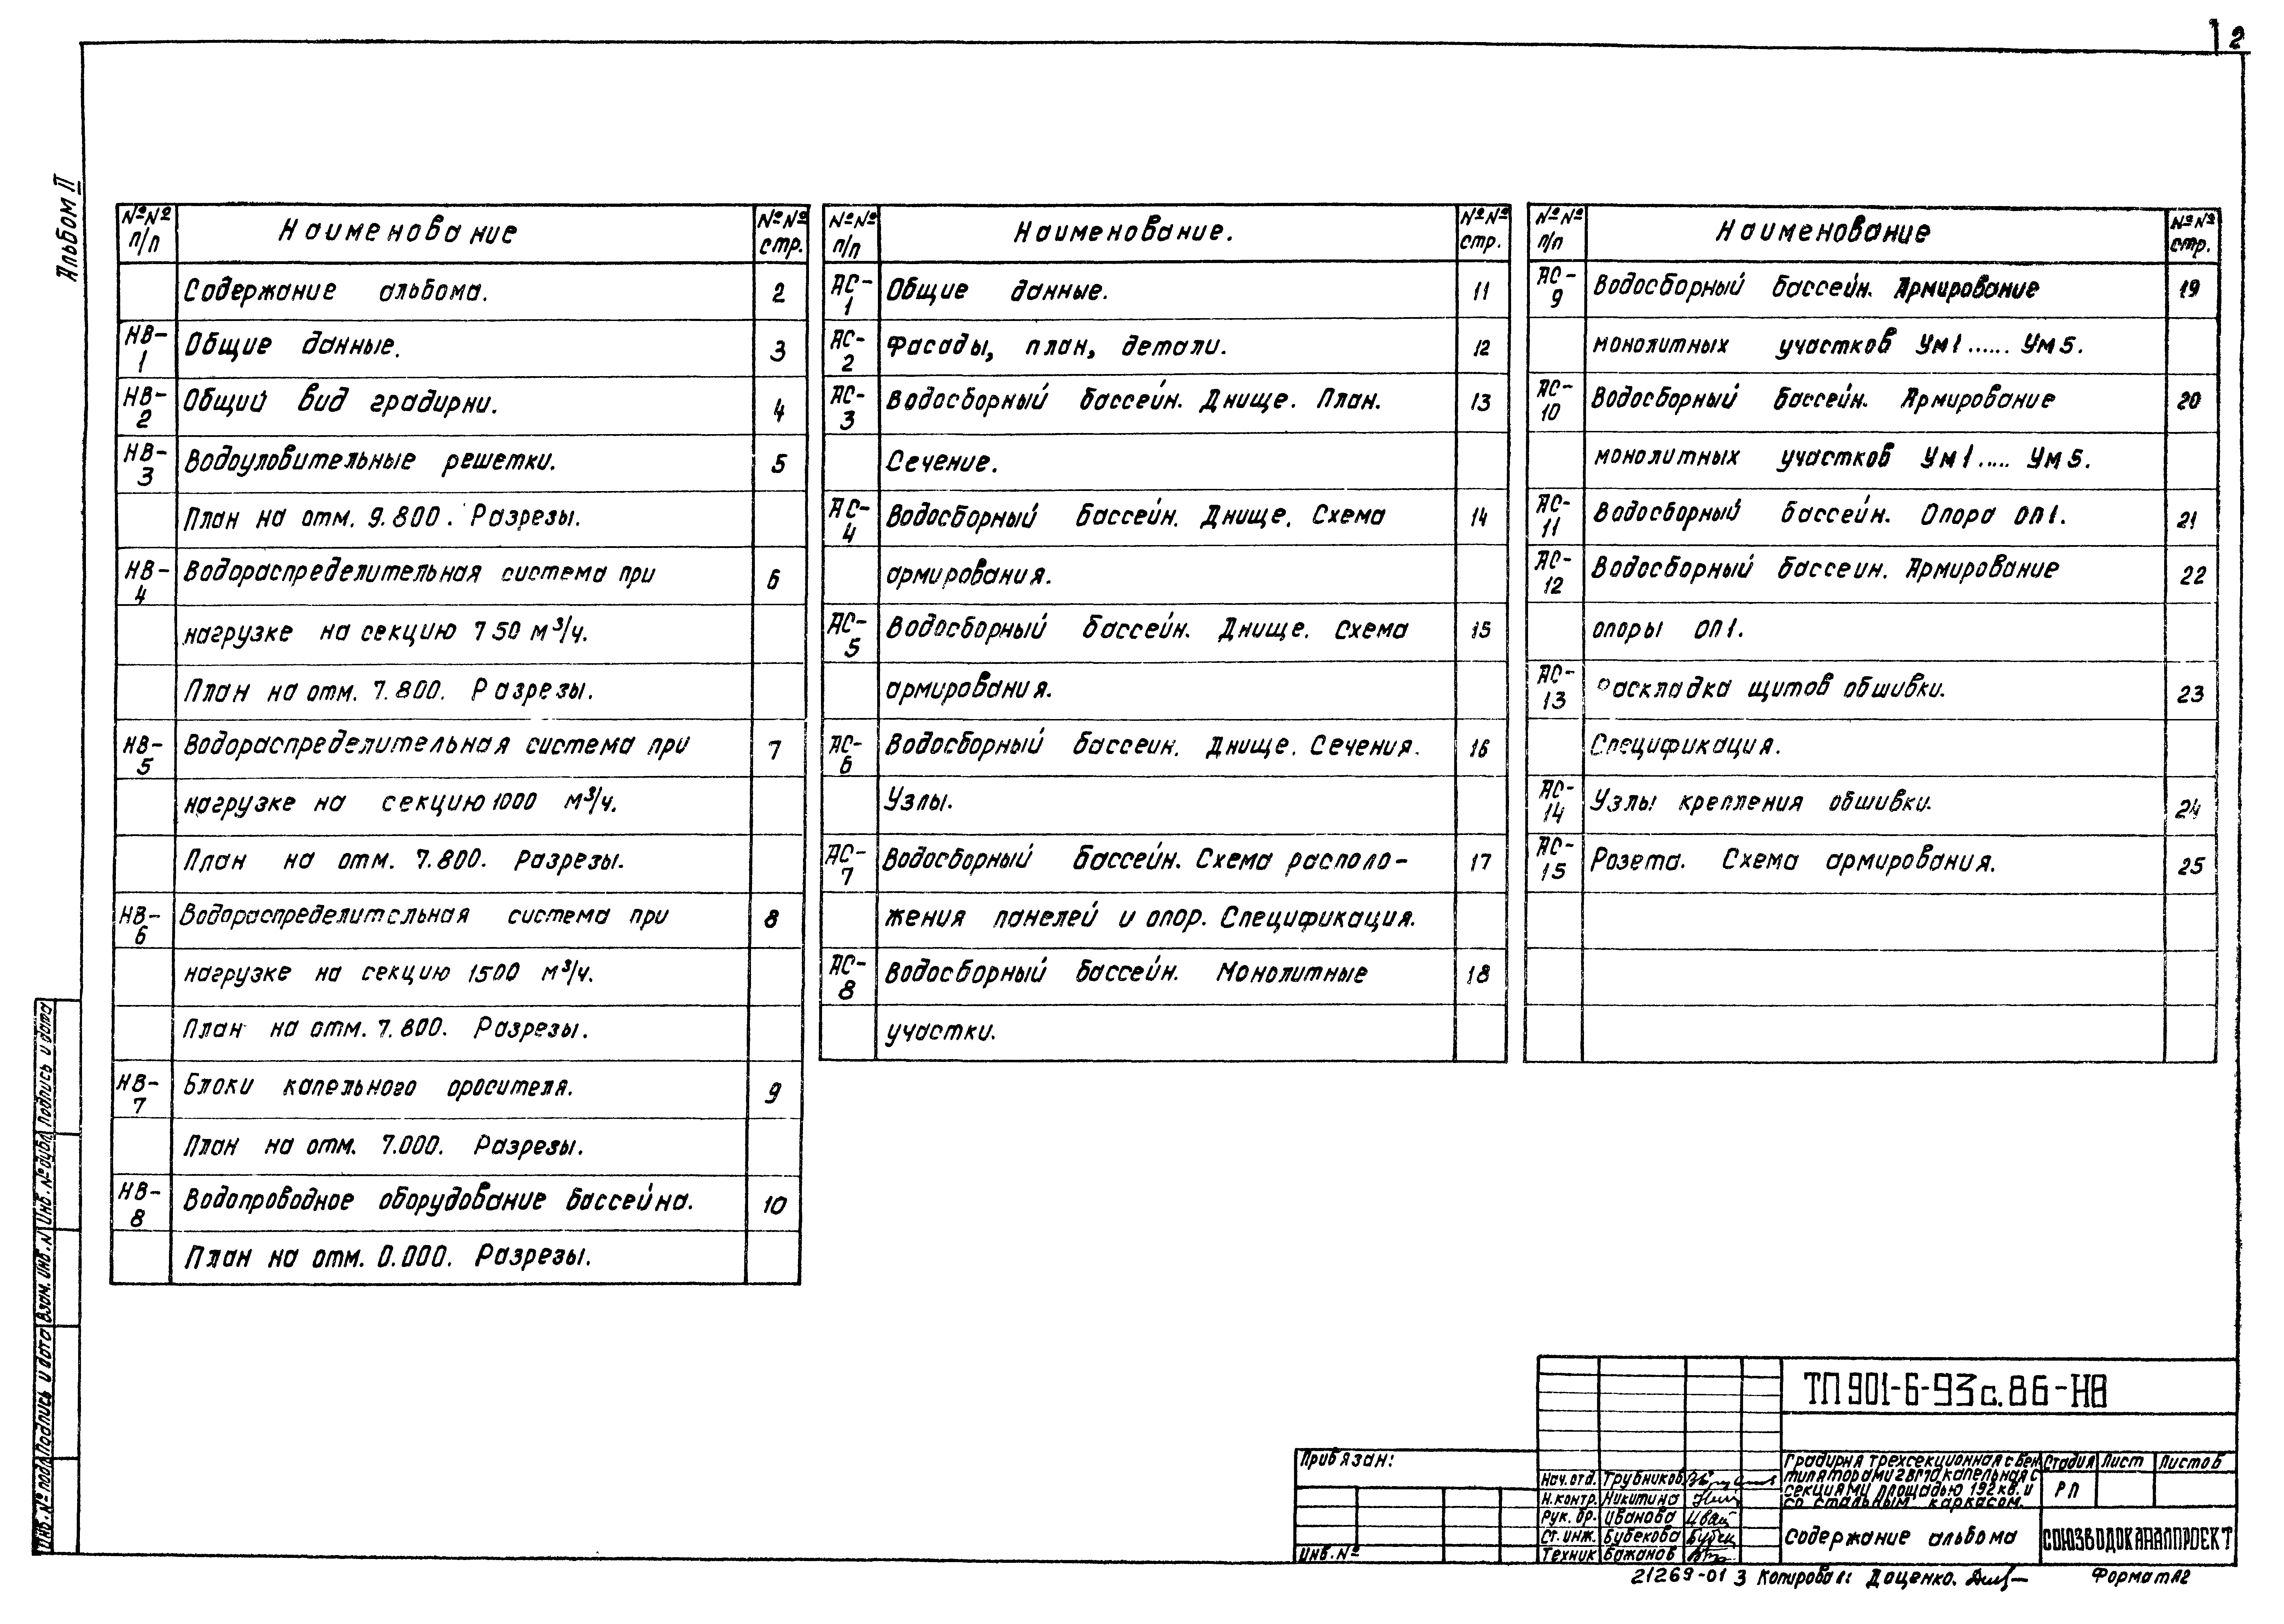 2
Альбом II
№№ п/п Наименование №№ стр.
Содержание альбома. 2
НВ-1 Общие данные. 3
НВ-2 Общий вид градирни. 4
НВ-3 Водоуловительные решетки. 5
План на отм. 9.800. Разрезы.
НВ-4 Водораспределительная система при 6
нагрузке на секцию 750 м³/ч.
План на отм. 7.800. Разрезы.
НВ-5 Водораспределительная система при 7
нагрузке на секцию 1000 м³/ч.
План на отм. 7.800. Разрезы.
НВ-6 Водораспределительная система при 8
нагрузке на секцию 1500 м³/ч.
План на отм. 7.800. Разрезы.
НВ-7 Блоки капельного оросителя. 9
План на отм. 7.000. Разрезы.
НВ-8 Водопроводное оборудование бассейна. 10
План на отм. 0.000. Разрезы.
№№ п/п Наименование. №№ стр.
АС-1 Общие данные. 11
АС-2 Фасады, план, детали. 12
АС-3 Водосборный бассейн. Днище. План. 13
Сечение.
АС-4 Водосборный бассейн. Днище. Схема 14
армирования.
АС-5 Водосборный бассейн. Днище. Схема 15
армирования.
АС-6 Водосборный бассейн. Днище. Сечения. 16
Узлы.
АС-7 Водосборный бассейн. Схема располо- 17
жения панелей и опор. Спецификация.
АС-8 Водосборный бассейн. Монолитные 18
участки.
№№ п/п Наименование №№ стр.
АС-9 Водосборный бассейн. Армирование 19
монолитных участков Ум1...... Ум5.
АС-10 Водосборный бассейн. Армирование 20
монолитных участков Ум1..... Ум5.
АС-11 Водосборный бассейн. Опора ОП1. 21
АС-12 Водосборный бассейн. Армирование 22
опоры ОП1.
АС-13 Раскладка щитов обшивки. 23
Спецификация.
АС-14 Узлы крепления обшивки. 24
АС-15 Розета. Схема армирования. 25
Инв.№ подл. Подпись и дата Взам. инв.№ Инв.№ дубл. Подпись и дата
Привязан:
Инв.№
ТП 901-6-93с.86-НВ
Нач.отд. Трубников
Н.контр. Никитина
Рук. бр. Иванова
Ст. инж. Бубекова
Техник Бажанов
Градирня трехсекционная с вен-
тиляторами 2ВГ70 капельная с
секциями площадью 192 кв. и
со стальным каркасом.
Стадия Лист Листов
РП
Содержание альбома
СОЮЗВОДОКАНАЛПРОЕКТ
21269-01 3 Копировал: Доценко. Формат А2